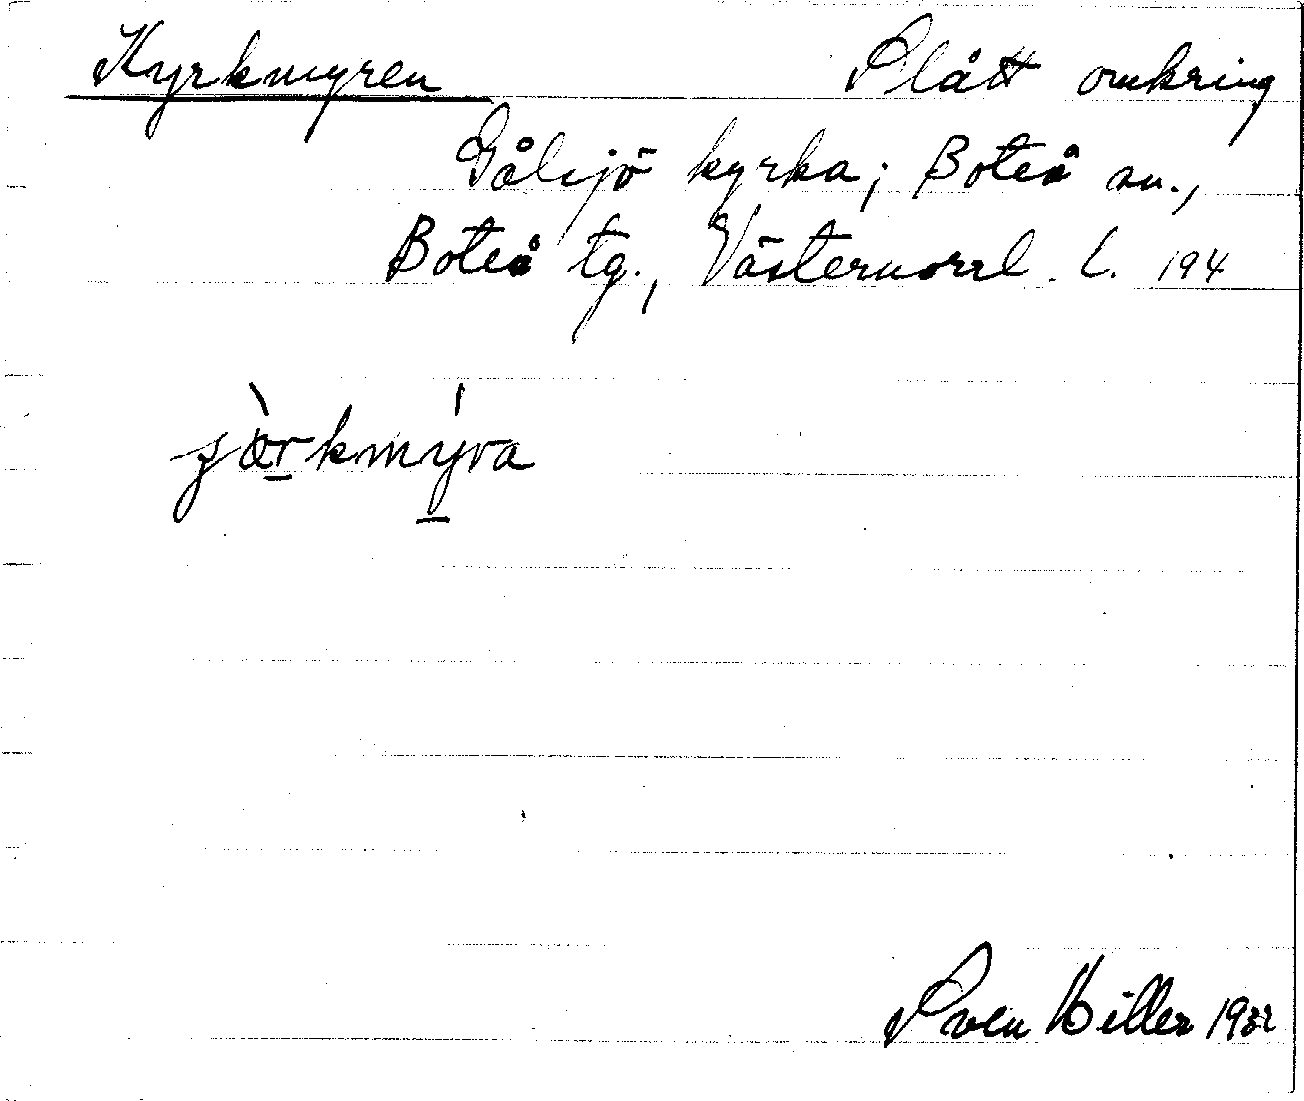 Kyrkmyren Slått omkring
Gålsjö kyrka; Boteå sn.,
Boteå tg., Västernorrl. l. 194
jàrkmýra
Sven Hiller 1932